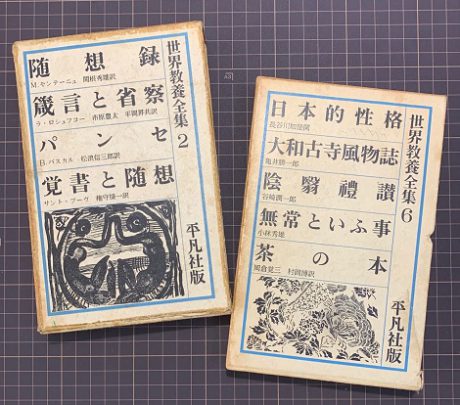 世界教養全集 2
随想録
M.モンテーニュ 関根秀雄訳
箴言と省察
ラ・ロシュフコー 市原豊太 平岡昇共訳
パンセ
B.パスカル 松浪信三郎訳
覚書と随想
サント・ブーヴ 権守操一訳
平凡社版
世界教養全集 6
日本的性格
長谷川如是閑
大和古寺風物誌
亀井勝一郎
陰翳禮讃
谷崎潤一郎
無常といふ事
小林秀雄
茶の本
岡倉覚三 村岡博訳
平凡社版